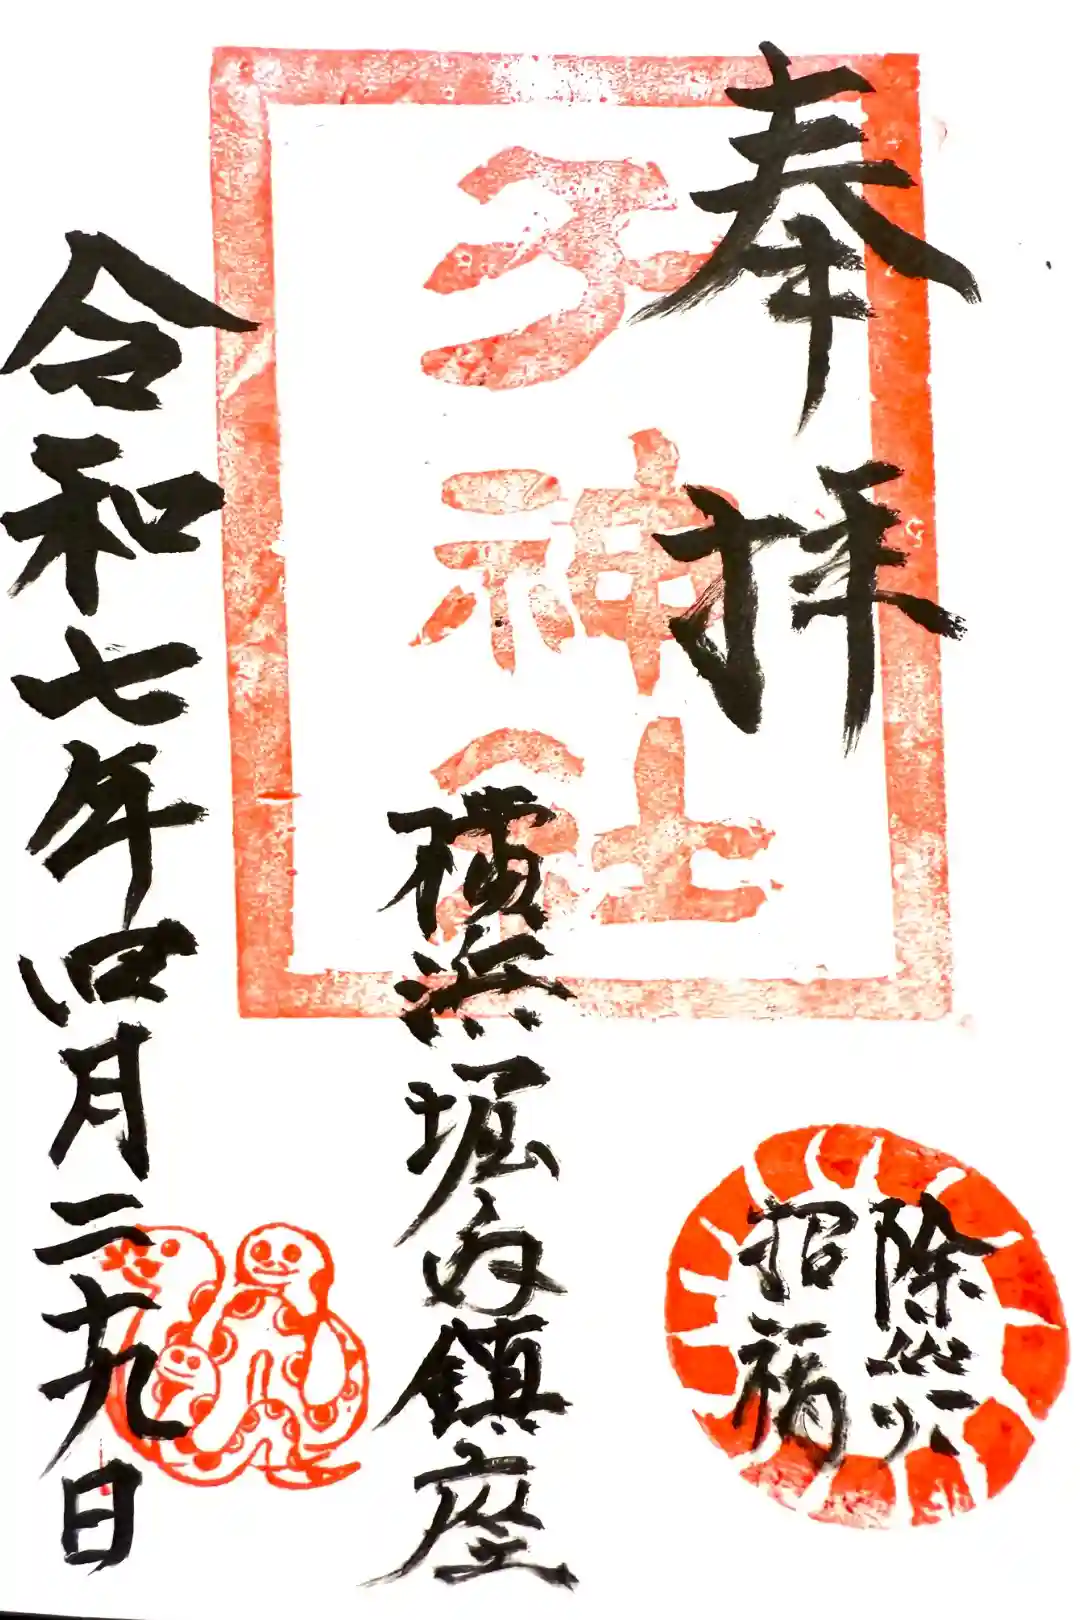 奉拝
子神社
横浜堀内鎮座
令和七年四月二十九日
除災
招福